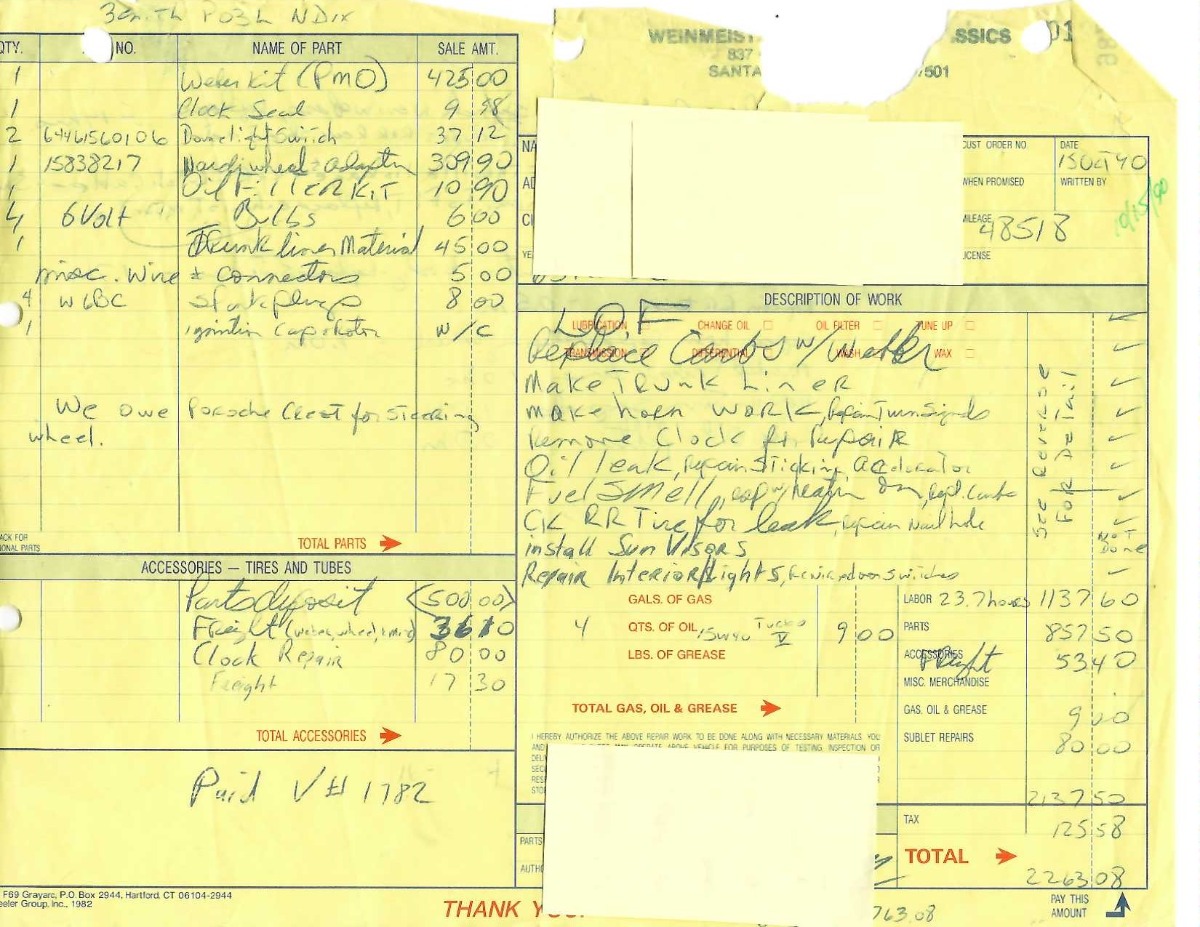 Zenith PO3L NDix
WEINMEIST SSICS 01
837
SANTA 7501
QTY. NO. NAME OF PART SALE AMT.
1 Weber Kit (PMO) 425 00
1 Clock Seal 9 58
2 64461560106 Domelight Switch 37 12
1 15838217 Nardi wheel adaptor 309 90
1 Oil Filter Kit 10 90
4 6 Volt Bulbs 6 00
1 Trunk liner Material 45 00
misc. Wire & connectors 5 00
4 W6BC spark plugs 8 00
1 ignition Cap & rotor W/C
We owe Porsche Crest for Steering
wheel.
ACK FOR
IONAL PARTS
TOTAL PARTS
ACCESSORIES — TIRES AND TUBES
Parts deposit <500 00>
Freight (weber, wheel, ) 36 10
Clock Repair 80 00
Freight 17 30
TOTAL ACCESSORIES
Paid V# 1782
F69 Grayarc, P.O. Box 2944, Hartford, CT 06104-2944
eeler Group, Inc., 1982
NA
AD
CI
YE
CUST ORDER NO. DATE
15 Oct 90
WHEN PROMISED WRITTEN BY
10/15/90
MILEAGE
48518
LICENSE
DESCRIPTION OF WORK
LUBRICATION CHANGE OIL OIL FILTER TUNE UP
TRANSMISSION DIFFERENTIAL WASH WAX
L.O.F
Replace Carbs w/ Weber
Make Trunk Liner
Make horn work, Repair Turn Signals
Remove Clock for Repair
Oil leak, Repair Sticking Accelerator
Fuel Smell, Repl. Carbs
Ck RR Tire for leak, repair Nail hole
install Sun Visors Not Done
Repair Interior Lights, door switches
See Reverse
For Detail
GALS. OF GAS
4 QTS. OF OIL 15W40 V 9 00
LBS. OF GREASE
TOTAL GAS, OIL & GREASE
LABOR 23.7 hours 1137 60
PARTS 857 50
ACCESSORIES Freight 53 40
MISC. MERCHANDISE
GAS, OIL & GREASE 9 00
SUBLET REPAIRS 80 00
2137 50
TAX 125 58
TOTAL 2263 08
I HEREBY AUTHORIZE THE ABOVE REPAIR WORK TO BE DONE ALONG WITH NECESSARY MATERIALS. YOU
AND MAY OPERATE ABOVE VEHICLE FOR PURPOSES OF TESTING, INSPECTION OR
PARTS
AUTHO
THANK YOU!
763.08
PAY THIS
AMOUNT